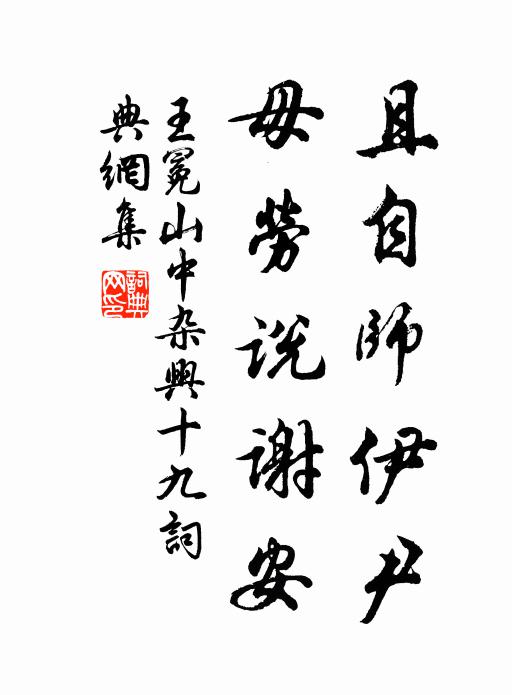 且自師伊尹
毋勞説謝安
王冕山中杂興十九詞
典網集
詞典網印